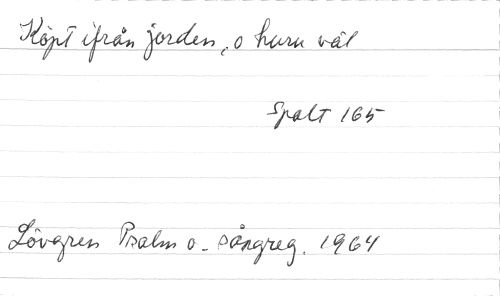 Köpt ifrån jorden, o huru väl
Spalt 165
Lövgren Psalm o. sångreg. 1964